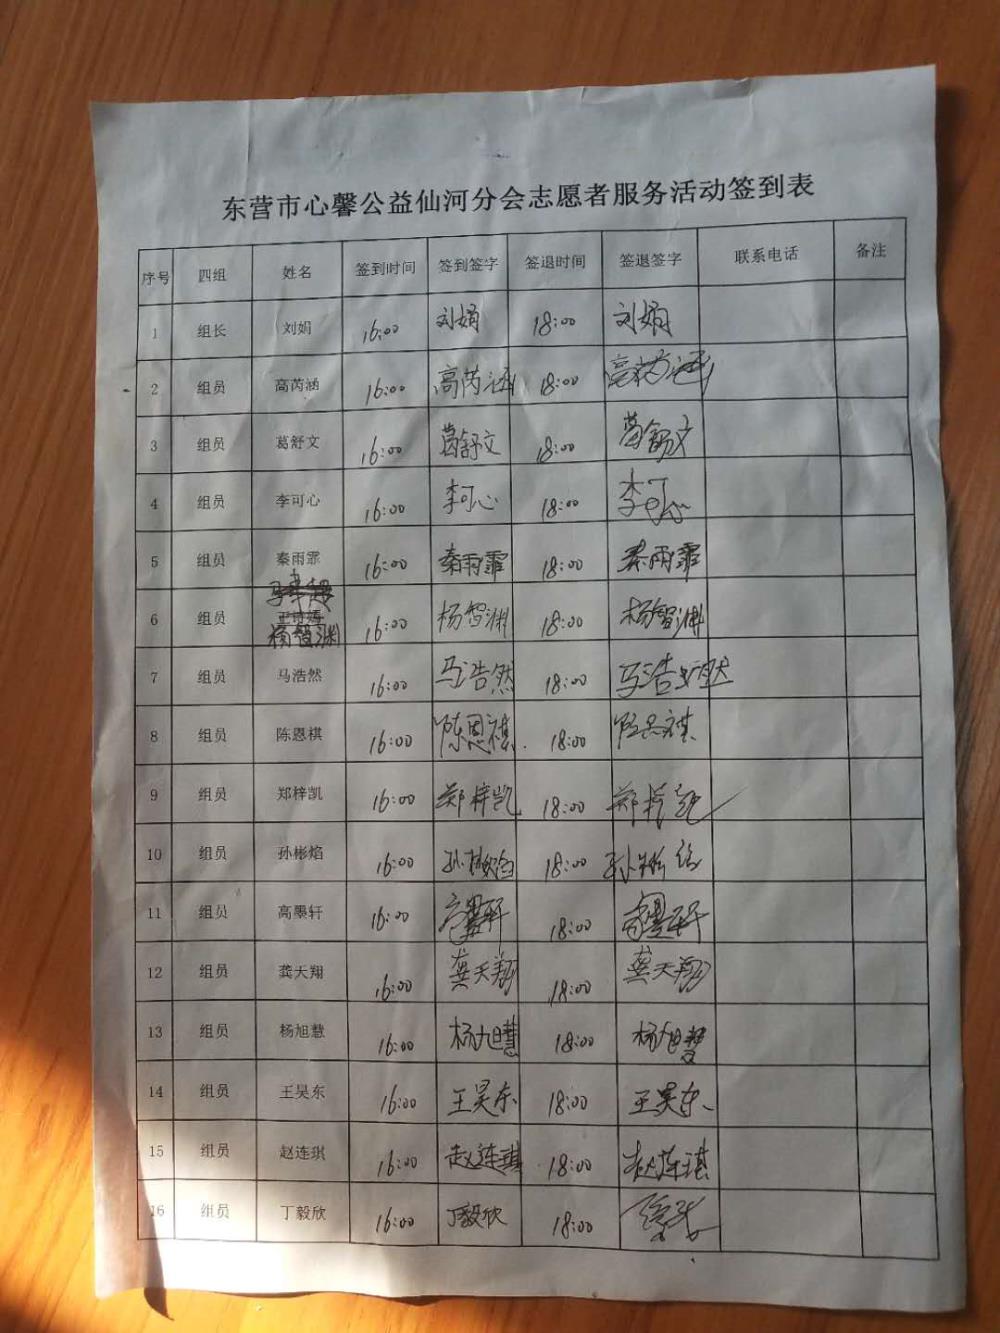 东营市心馨公益仙河分会志愿者服务活动签到表
序号 四组 姓名 签到时间 签到签字 签退时间 签退签字 联系电话 备注
1 组长 刘娟 16:00 刘娟 18:00 刘娟
2 组员 高芮涵 16:00 高芮涵 18:00 高芮涵
3 组员 葛舒文 16:00 葛舒文 18:00 葛舒文
4 组员 李可心 16:00 李可心 18:00 李可心
5 组员 秦雨霏 16:00 秦雨霏 18:00 秦雨霏
6 组员 杨智渊 16:00 杨智渊 18:00 杨智渊
7 组员 马浩然 16:00 马浩然 18:00 马浩然
8 组员 陈恩祺 16:00 陈恩祺 18:00 陈恩祺
9 组员 郑梓凯 16:00 郑梓凯 18:00 郑梓凯
10 组员 孙彬焰 16:00 孙彬焰 18:00
11 组员 高墨轩 16:00 高墨轩 18:00 高墨轩
12 组员 龚天翔 16:00 龚天翔 18:00 龚天翔
13 组员 杨旭慧 16:00 杨旭慧 18:00 杨旭慧
14 组员 王昊东 16:00 王昊东 18:00 王昊东
15 组员 赵连琪 16:00 赵连琪 18:00 赵连琪
16 组员 丁毅欣 16:00 丁毅欣 18:00